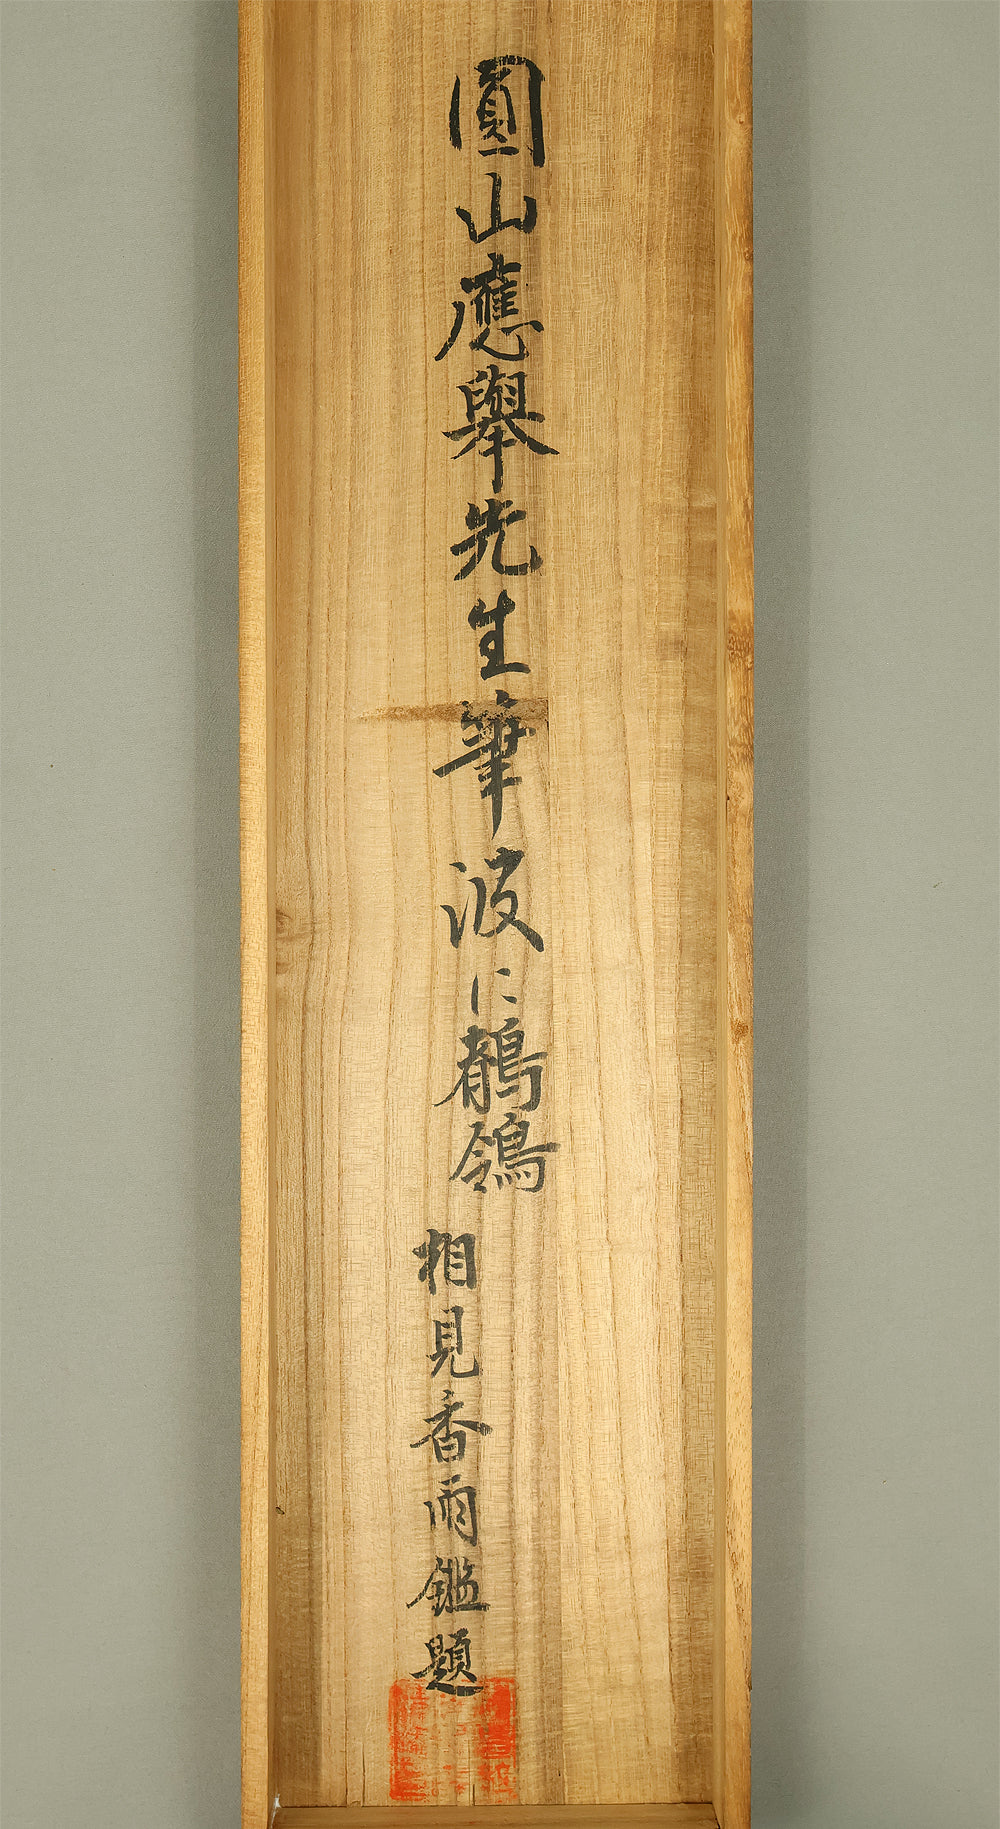 圓山應擧先生筆波に鶺鴒
相見香雨鑑題